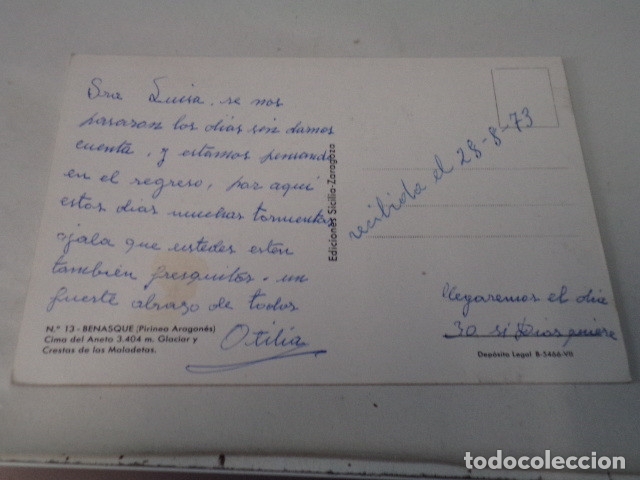 Sra Luisa, se nos
pasaron los días sin darnos
cuenta, y estamos pensando
en el regreso, por aquí
estos días muchas tormentas
ojala que ustedes estén
también fresquitos. un
fuerte abrazo de todos
Otilia
N.º 13 - BENASQUE (Pirineo Aragonés)
Cima del Aneto 3.404 m. Glaciar y
Crestas de las Maladetas.
Ediciones Sicilia-Zaragoza
recibida el 28-8-73
llegaremos el día
30 si Dios quiere
Depósito Legal B-5466-VII
todocoleccion.net